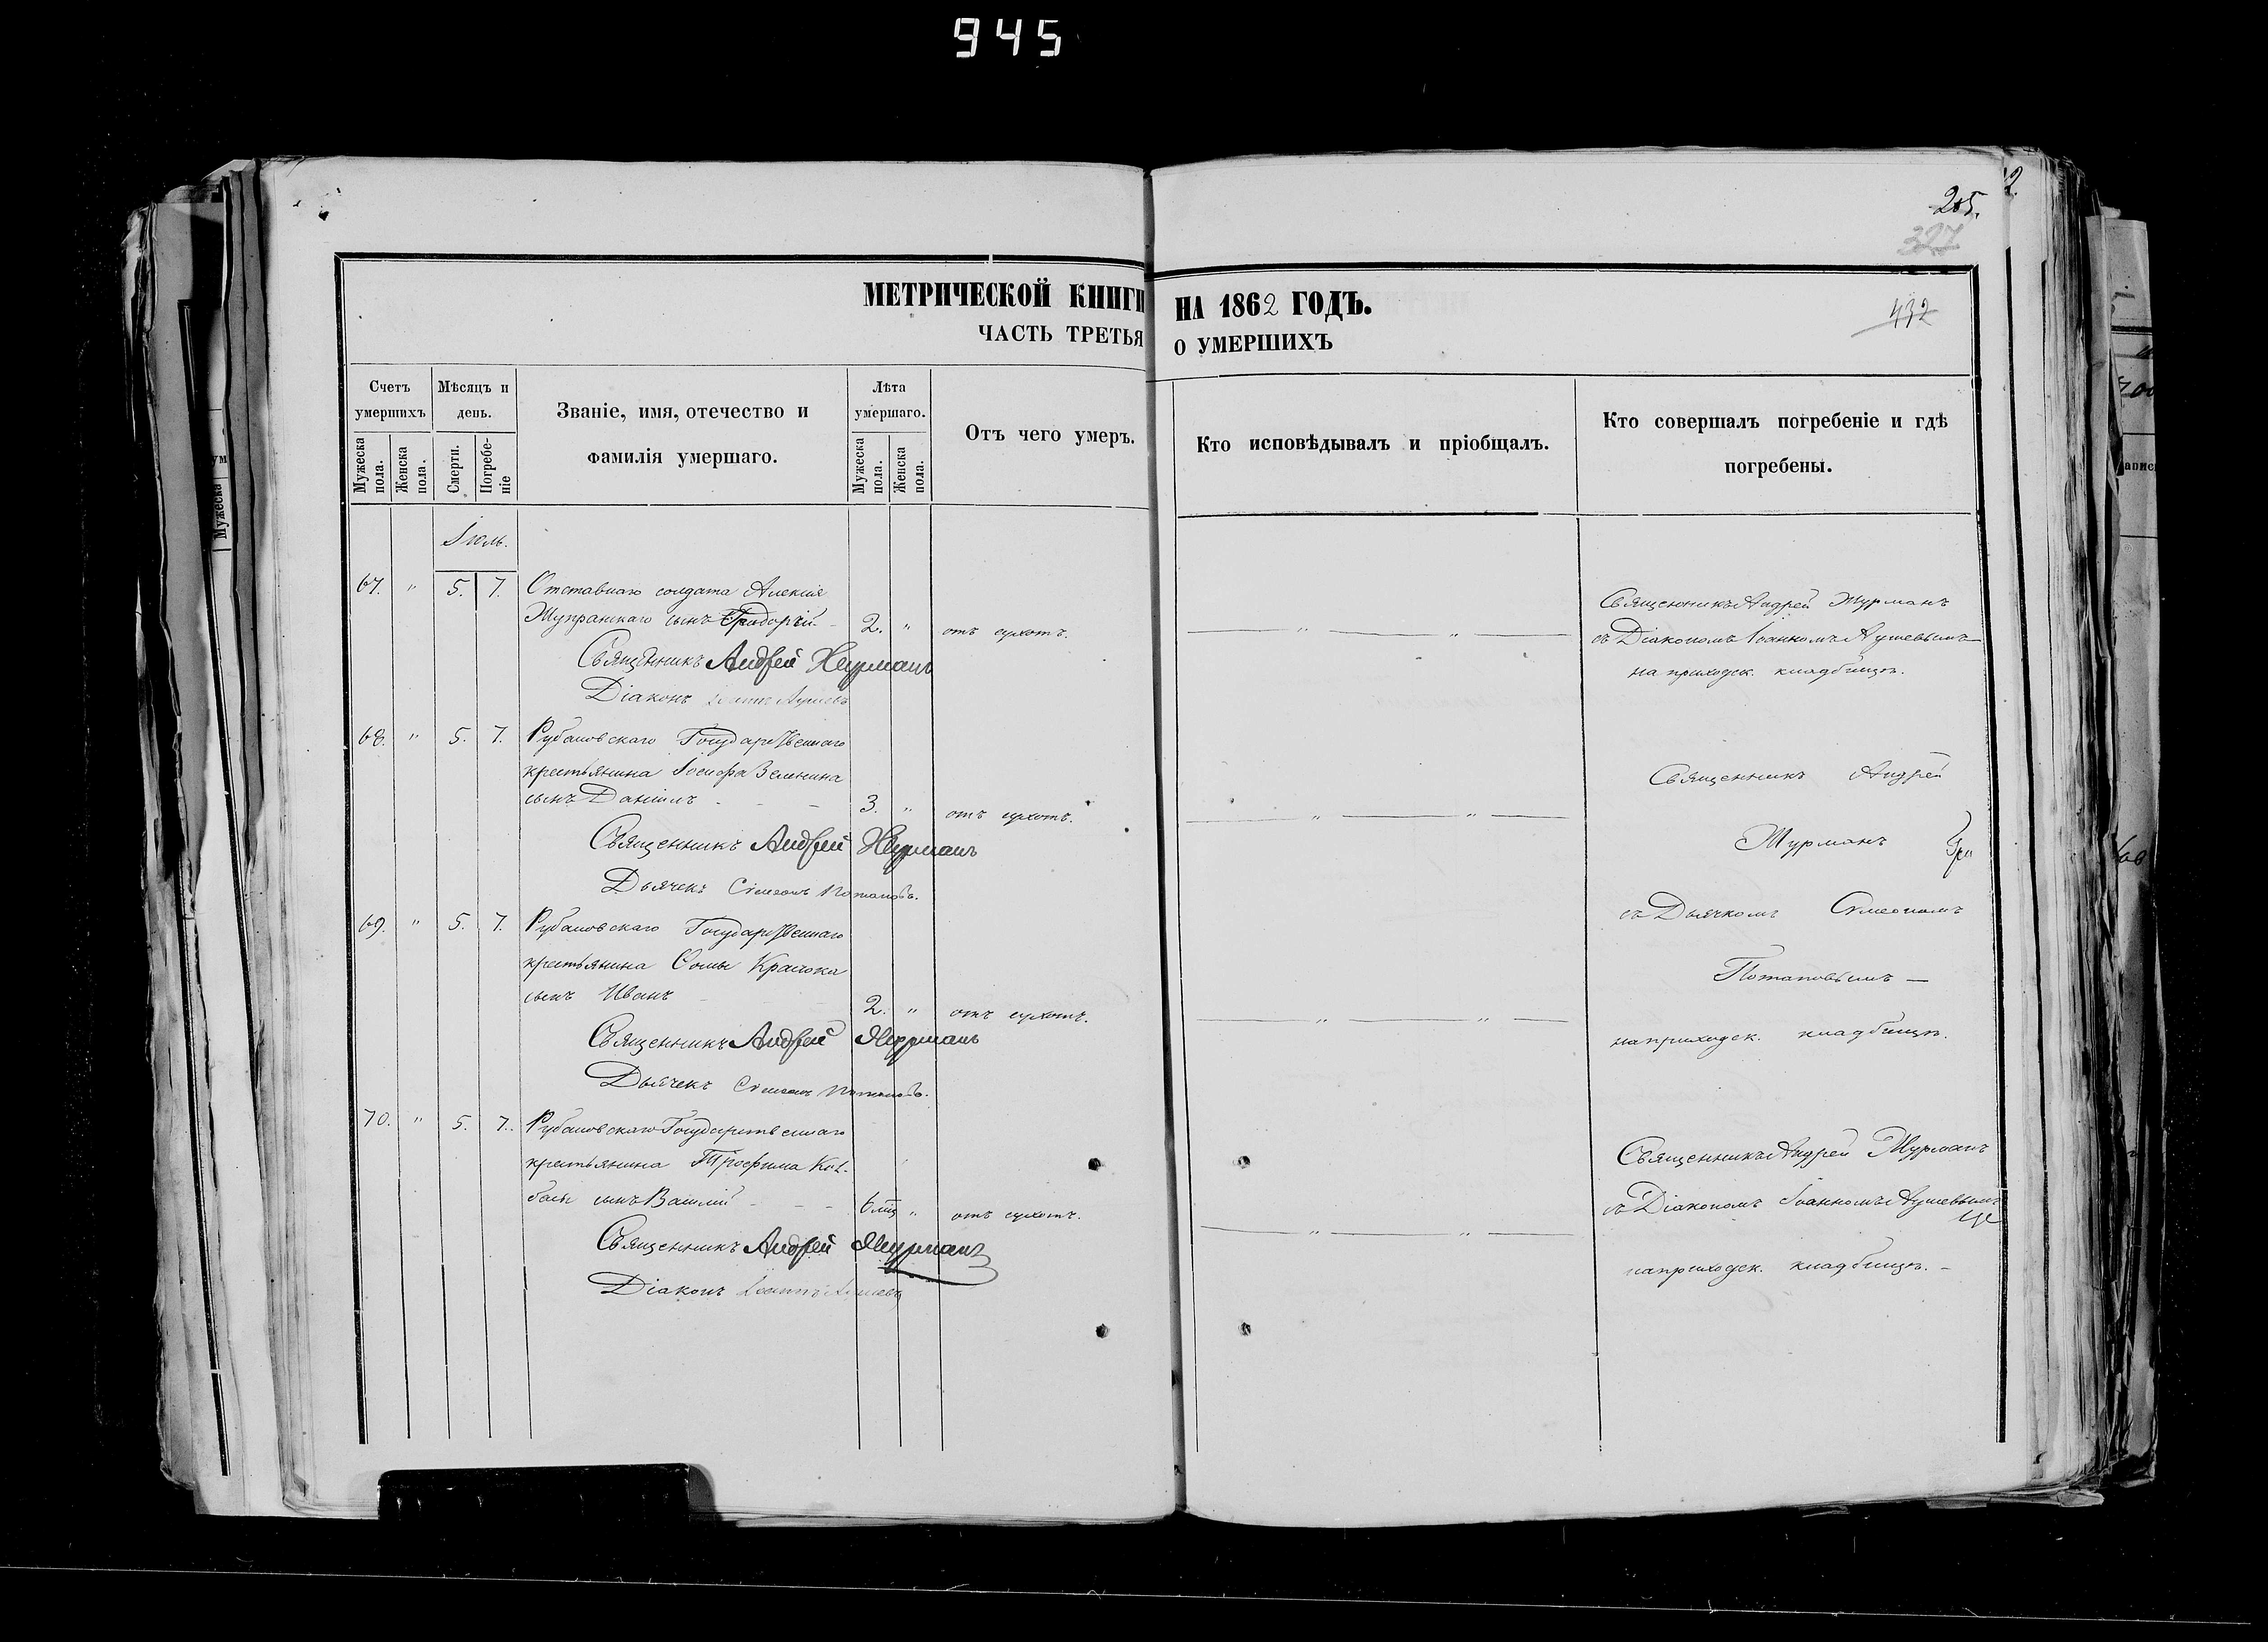 945
205.
327
432
МЕТРИЧЕСКОЙ КНИГИ НА 1862 ГОДЪ.
ЧАСТЬ ТРЕТЬЯ О УМЕРШИХЪ
Счетъ умершихъ
Мѣсяцъ и день.
Званіе, имя, отечество и фамилія умершаго.
Лѣта умершаго.
Отъ чего умеръ.
Кто исповѣдывалъ и пріобщалъ.
Кто совершалъ погребеніе и гдѣ погребены.
Мужеска пола.
Женска пола.
Смерти.
Погребеніе
Мужеска пола.
Женска пола.
Іюль.
67. " 5. 7. Отставнаго солдата Алексія
сынъ Григорій 2. " отъ сухотъ.
Священникъ Андрей Журманъ
Діаконъ
Священникъ Андрей Журманъ
съ Діакономъ Іоанномъ
на приходск. кладбищѣ.
68. " 5. 7. Рубановскаго Государственнаго
крестьянина Іосифа Зеленина
сынъ Даніилъ 3. " отъ сухотъ.
Священникъ Андрей Журманъ
Дьячекъ Сімеонъ Потаповъ.
69. " 5. 7. Рубановскаго Государственнаго
крестьянина Ѳомы
сынъ Иванъ 2. " отъ сухотъ.
Священникъ Андрей Журманъ
Дьячекъ Сімеонъ Потаповъ.
Священникъ Андрей
Журманъ
съ Дьячкомъ Сімеономъ
Потаповымъ —
на приходск. кладбищѣ.
70. " 5. 7. Рубановскаго Государственнаго
крестьянина Трофима Кол-
басы сынъ Василій 6 мц " отъ сухотъ.
Священникъ Андрей Журманъ
Діаконъ
Священникъ Андрей Журманъ
съ Діакономъ Іоанномъ
на приходск. кладбищѣ. —